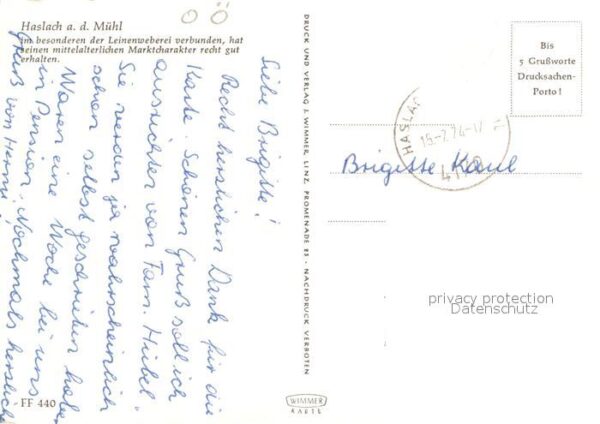 OÖ
Haslach a. d. Mühl
im besonderen der Leinenweberei verbunden, hat
seinen mittelalterlichen Marktcharakter recht gut
erhalten.
Liebe Brigitte!
Recht herzlichen Dank für die
Karte. Schönen Gruß soll ich
ausrichten von Fam. Hübel.
Sie werden ja wahrscheinlich
schon selbst geschrieben haben
Waren eine Woche bei uns
in Pension. Nochmals herzlich
Gruß von
FF 440
DRUCK UND VERLAG J. WIMMER, LINZ, PROMENADE 23 - NACHDRUCK VERBOTEN
WIMMER
KARTE
Bis
5 Grußworte
Drucksachen-
Porto!
HASLA
4170
Brigitte Kaul
privacy protection
Datenschutz